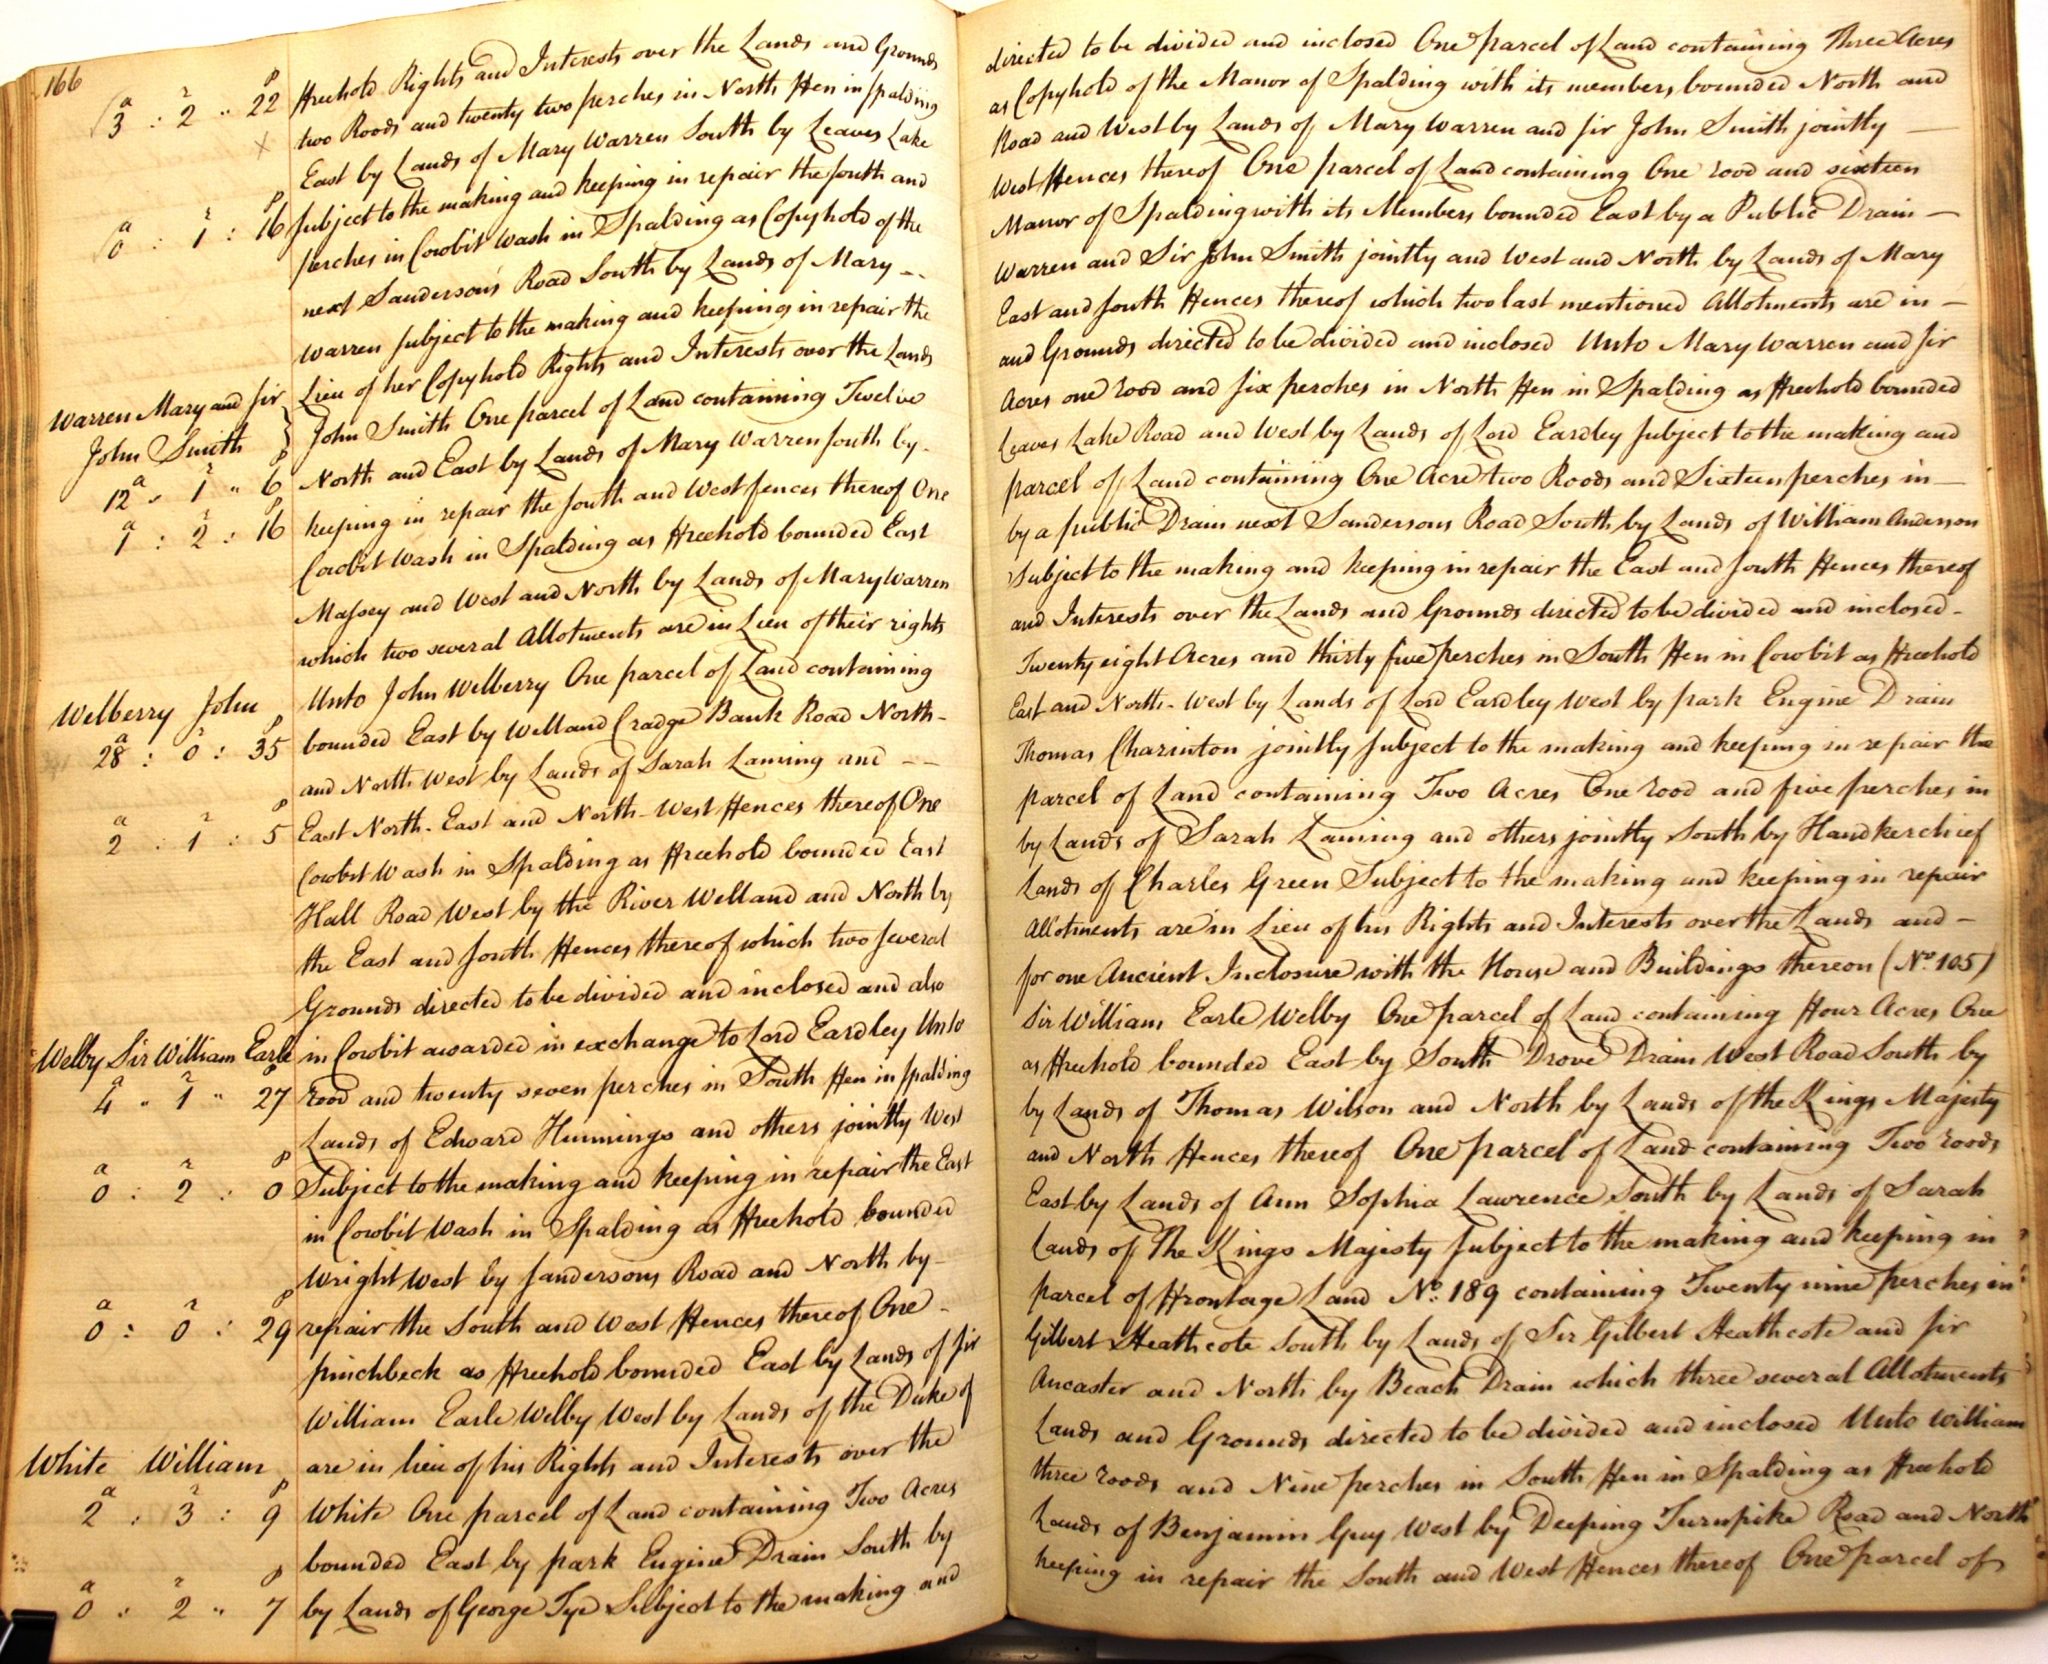 166
a r p
3 : 2 " 22
Freehold Rights and Interests over the Lands and Grounds
directed to be divided and inclosed One parcel of Land containing Three Acres
two Roods and twenty two perches in North Fen in Spalding
as Copyhold of the Manor of Spalding with its members, bounded North and
East by Lands of Mary Warren South by Leaves Lake
Road and West by Lands of Mary Warren and Sir John Smith jointly
Subject to the making and keeping in repair the South and
West Fences thereof One parcel of Land containing One rood and sixteen
a r p
0 : 1 : 16
perches in Cowbit Wash in Spalding as Copyhold of the
Manor of Spalding with its Members bounded East by a Public Drain
next Sanderson's Road South by Lands of Mary
Warren and Sir John Smith jointly and West and North by Lands of Mary
Warren Subject to the making and keeping in repair the
East and South Fences thereof which two last mentioned Allotments are in
Lieu of her Copyhold Rights and Interests over the Lands
and Grounds directed to be divided and inclosed Unto Mary Warren and Sir
Warren Mary and Sir
John Smith
a r p
12 " 1 " 6
John Smith One parcel of Land containing Twelve
Acres one rood and Six perches in North Fen in Spalding as Freehold bounded
North and East by Lands of Mary Warren South by
Leaves Lake Road and West by Lands of Lord Eardley Subject to the making and
a r p
1 : 2 : 16
keeping in repair the South and West fences thereof One
parcel of Land containing One Acre two Roods and Sixteen perches in
Cowbit Wash in Spalding as Freehold bounded East
by a public Drain next Sandersons Road South by Lands of William Anderson
Massey and West and North by Lands of Mary Warren
Subject to the making and keeping in repair the East and South Fences thereof
which two several Allotments are in Lieu of their rights
and Interests over the Lands and Grounds directed to be divided and inclosed
Welberry John
a r p
28 : 0 : 35
Unto John Welberry One parcel of Land containing
Twenty eight Acres and thirty five perches in South Fen in Cowbit as Freehold
bounded East by Welland Cradge Bank Road North-
East and North-West by Lands of Lord Eardley West by park Engine Drain
and North West by Lands of Sarah Laming and
Thomas Charinton jointly Subject to the making and keeping in repair the
East North-East and North-West Fences thereof One
parcel of Land containing Two Acres One rood and five perches in
a r p
2 : 1 : 5
Cowbit Wash in Spalding as Freehold bounded East
by Lands of Sarah Laming and others jointly South by Handkerchief
Hall Road West by the River Welland and North by
Lands of Charles Green Subject to the making and keeping in repair
the East and South Fences thereof which two several
Allotments are in Lieu of his Rights and Interests over the Lands and
Grounds directed to be divided and inclosed and also
for one Ancient Inclosure with the House and Buildings thereon (No. 105)
in Cowbit awarded in exchange to Lord Eardley Unto
Sir William Earle Welby One parcel of Land containing Four Acres One
Welby Sir William Earle
a r p
4 " 1 " 27
rood and twenty seven perches in South Fen in Spalding
as Freehold bounded East by South Drove Drain West Road South by
Lands of Edward Hunnings and others jointly West
by Lands of Thomas Wilson and North by Lands of the Kings Majesty
Subject to the making and keeping in repair the East
and North Fences thereof One parcel of Land containing Two roods
a r p
0 : 2 : 0
in Cowbit Wash in Spalding as Freehold bounded
East by Lands of Ann Sophia Lawrence South by Lands of Sarah
Wright West by Sandersons Road and North by
Lands of The Kings Majesty Subject to the making and keeping in
repair the South and West Fences thereof One
parcel of Frontage Land No. 189 containing Twenty nine perches in
a r p
0 : 0 : 29
pinchbeck as Freehold bounded East by Lands of Sir
Gilbert Heathcote South by Lands of Sir Gilbert Heathcote and Sir
William Earle Welby West by Lands of the Duke of
Ancaster and North by Beach Drain which three several Allotments
are in lieu of his Rights and Interests over the
Lands and Grounds directed to be divided and inclosed Unto William
White William
a r p
2 : 3 : 9
White One parcel of Land containing Two Acres
three roods and Nine perches in South Fen in Spalding as Freehold
bounded East by park Engine Drain South by
Lands of Benjamin Guy West by Deeping Turnpike Road and North
by Lands of George Tye Subject to the making and
keeping in repair the South and West Fences thereof One parcel of
a r p
0 : 2 " 7